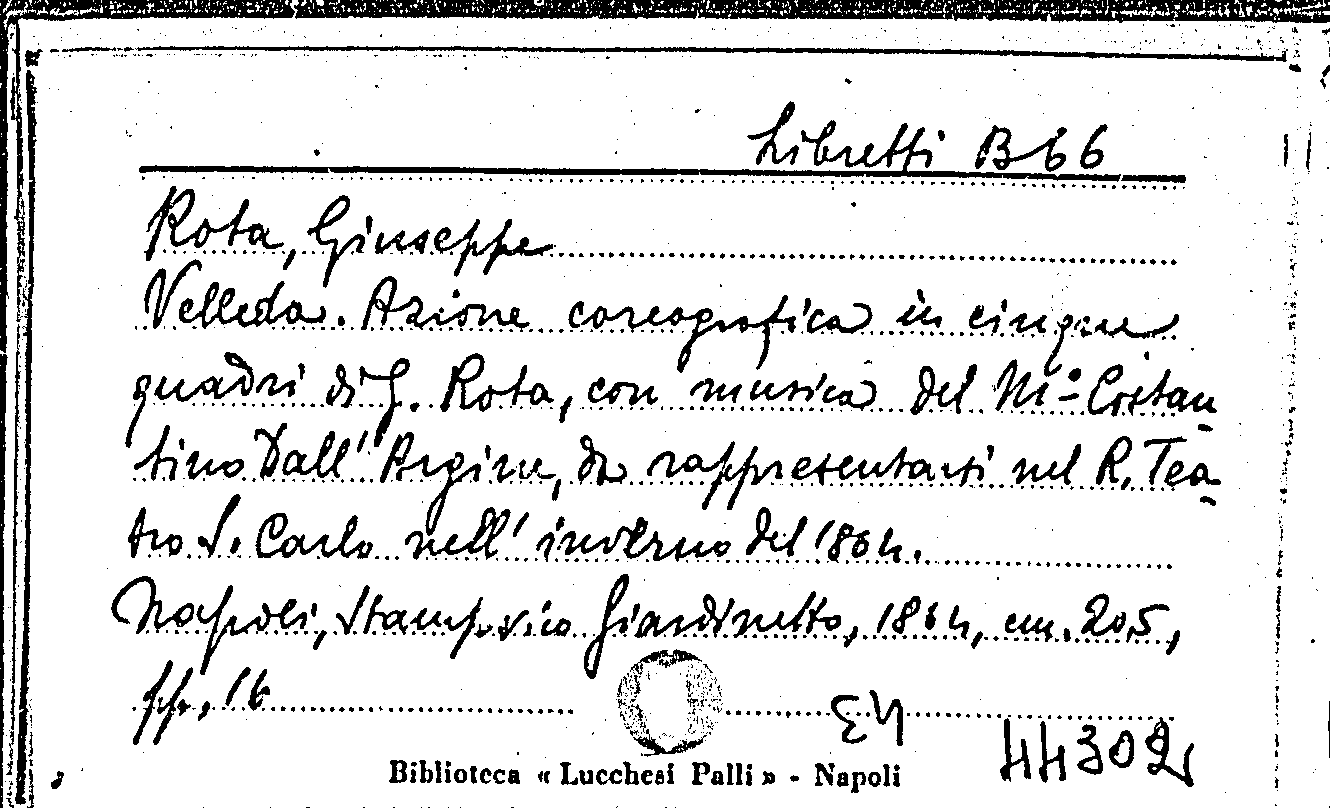 Libretti B 66
Rota, Giuseppe
Velleda. Azione coreografica in cinque
quadri di G. Rota, con musica del M.º Costan-
tino Dall'Argine, da rappresentarsi nel R. Tea-
tro S. Carlo nell'inverno del 1864.
Napoli, Stamp. vico Giardinetto, 1864, cm. 20,5,
pp. 16
44302
Biblioteca « Lucchesi Palli » - Napoli